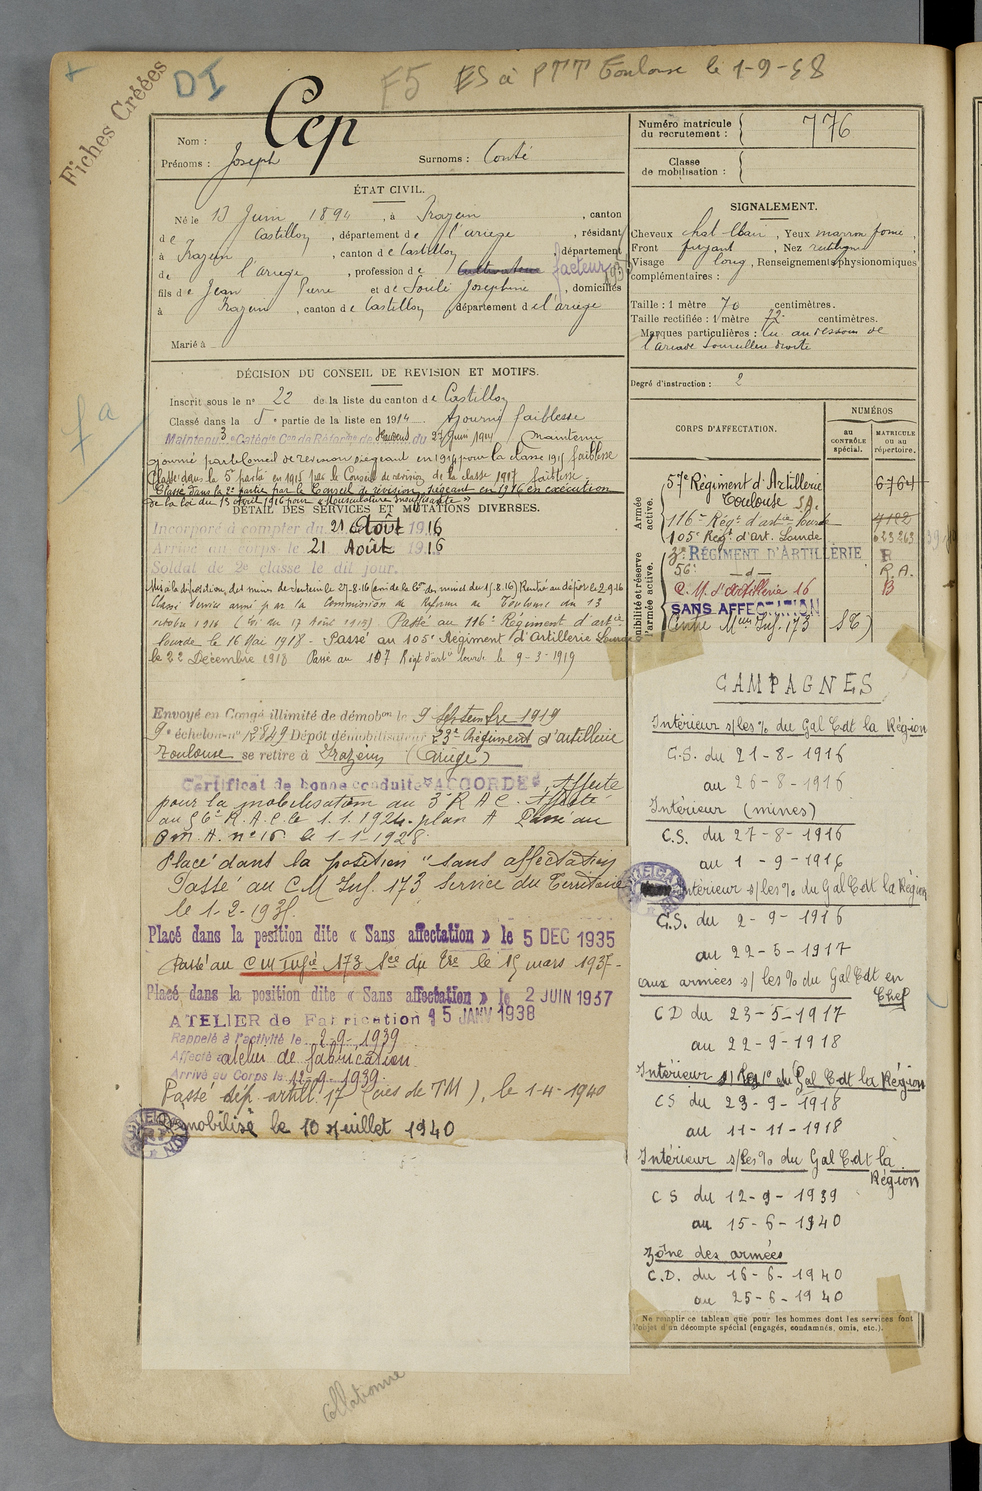 Fiches Créées
DI
F5 ES à PTT Toulouse le 1-9-48
Nom : Cep
Prénoms : Joseph Surnoms : Conté
ÉTAT CIVIL.
Né le 13 Juin 1894, à Irazein, canton
de Castillon, département de l'ariege, résidant
à Irazein, canton de Castillon, département
de l'ariege, profession de Cultivateur facteur
fils de Jean Pierre et de Soulé Josephine, domiciliés
à Irazein, canton de Castillon, département de l'ariege
Marié à
DÉCISION DU CONSEIL DE REVISION ET MOTIFS.
Inscrit sous le n° 22 de la liste du canton de Castillon
Classé dans la 5e partie de la liste en 1914 Ajourné faiblesse
Maintenu 3e Catégie Con de Réforme de du 27 Juin 1914 Maintenu
ajourné par le Conseil de revision siégeant en 1914 pour la classe 1915 faiblesse
Classé dans la 5e partie en 1915 par le Conseil de révision de la classe 1917 faiblesse
Classé dans la 2e partie par le Conseil de révision siégeant en 1916 en exécution
de la loi du 15 avril 1916 pour « Musculature insuffisante »
DÉTAIL DES SERVICES ET MUTATIONS DIVERSES.
Incorporé à compter du 21 Août 1916
Arrivé au corps le 21 Août 1916
Soldat de 2e classe le dit jour.
Mis à la disposition des mines de Sentein le 27-8-16 (ami de la Con des mines du 15.8.16) Rentré au dépôt le 2.9.16
Classé service armé par la Commission de Réforme de Toulouse du 13
octobre 1916 Passé au 116e Régiment d'artie
lourde le 16 Mai 1918 - Passé au 105e Régiment d'Artillerie Lourde
le 22 Décembre 1918 Passé au 107 Régt d'artie lourde le 9-3-1919
Envoyé en Congé illimité de démobon le 9 Septembre 1919
9e échelon n° 12849 Dépôt démobilisateur 23e Régiment d'artillerie
Toulouse se retire à Irazein (Ariège)
Certificat de bonne conduite "ACCORDÉ" Affecté
pour la mobilisation au 3e R A C. Affecté
au 56e R.A.C. le 1.1.1924. plan A Passé au
C.M.A. n° 16 le 1-1-1928.
Placé dans la position "sans affectation
Passé au C M Inf. 173 Service du Territoire
le 1-2-193
Placé dans la position dite « Sans affectation » le 5 DEC 1935
Passé au C M Infie 173 Sce du Tre le 15 mars 1937-
Placé dans la position dite « Sans affectation » le 2 JUIN 1937
ATELIER de Fabrication 15 JANV 1938
Rappelé à l'activité le 2-9-1939
Affecté atelier de fabrication
Arrivé au Corps le 12-9-1939.
Passé dép. artill. 17 (Cies de TM), le 1-4-1940
mobilisé le 10 Juillet 1940
Collationné
Numéro matricule
du recrutement : 776
Classe
de mobilisation :
SIGNALEMENT.
Cheveux chat clair, Yeux marron foncé,
Front fuyant, Nez rectiligne,
Visage long, Renseignements physionomiques
complémentaires :
Taille : 1 mètre 70 centimètres.
Taille rectifiée : 1 mètre 72 centimètres.
Marques particulières : Cic au dessous de
l'arcade sourcilière droite
Degré d'instruction : 2
CORPS D'AFFECTATION.
NUMÉROS
AU CONTRÔLE spécial.
MATRICULE ou au répertoire.
Armée active.
57e Régiment d'Artillerie 6764
Toulouse S.A.
116e Régt d'artie lourde 4182
105e Regt d'art. Lourde
3e RÉGIMENT D'ARTILLERIE R
56e —d— R.A.
C.M. d'Artillerie 16 B
SANS AFFECTATION
Centre Mon Inf. 173 ST)
Disponibilité et réserve de l'armée active.
CAMPAGNES
Intérieur s/les % du Gal Cdt la Région
C.S. du 21-8-1916
au 26-8-1916
Intérieur (mines)
C.S. du 27-8-1916
au 1-9-1916
Intérieur s/les % du Gal Cdt la Région
C.S. du 2-9-1916
au 22-5-1917
aux armées s/ les % du Gal Cdt en
Chef
C D du 23-5-1917
au 22-9-1918
Intérieur s/ les % du Gal Cdt la Région
CS du 23-9-1918
au 11-11-1918
Intérieur s/les % du Gal Cdt la
Région
C S du 12-9-1939
au 15-6-1940
Zône des armées
C.D. du 16-6-1940
au 25-6-1940
Ne remplir ce tableau que pour les hommes dont les services font
l'objet d'un décompte spécial (engagés, condamnés, omis, etc.).